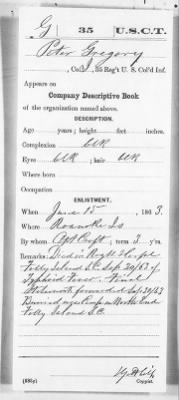 G | 35 | U.S.C.T.
Peter Gregory
, Co. I, 35 Reg't U. S. Col'd Inf.
Appears on
Company Descriptive Book
of the organization named above.
DESCRIPTION.
Age years; height feet inches.
Complexion blk
Eyes blk; hair blk
Where born
Occupation
ENLISTMENT.
When June 15, 1863.
Where Roanoke Is
By whom Capt Croft; term 3 y'rs.
Remarks: Died in Regt Hospl
Folly Island S.C. Sep 30/63 of
Typhoid Fever. Final
Statements forwarded Sep 30/63
Buried near Camp on North End
Folly Island S.C.
Copyist.